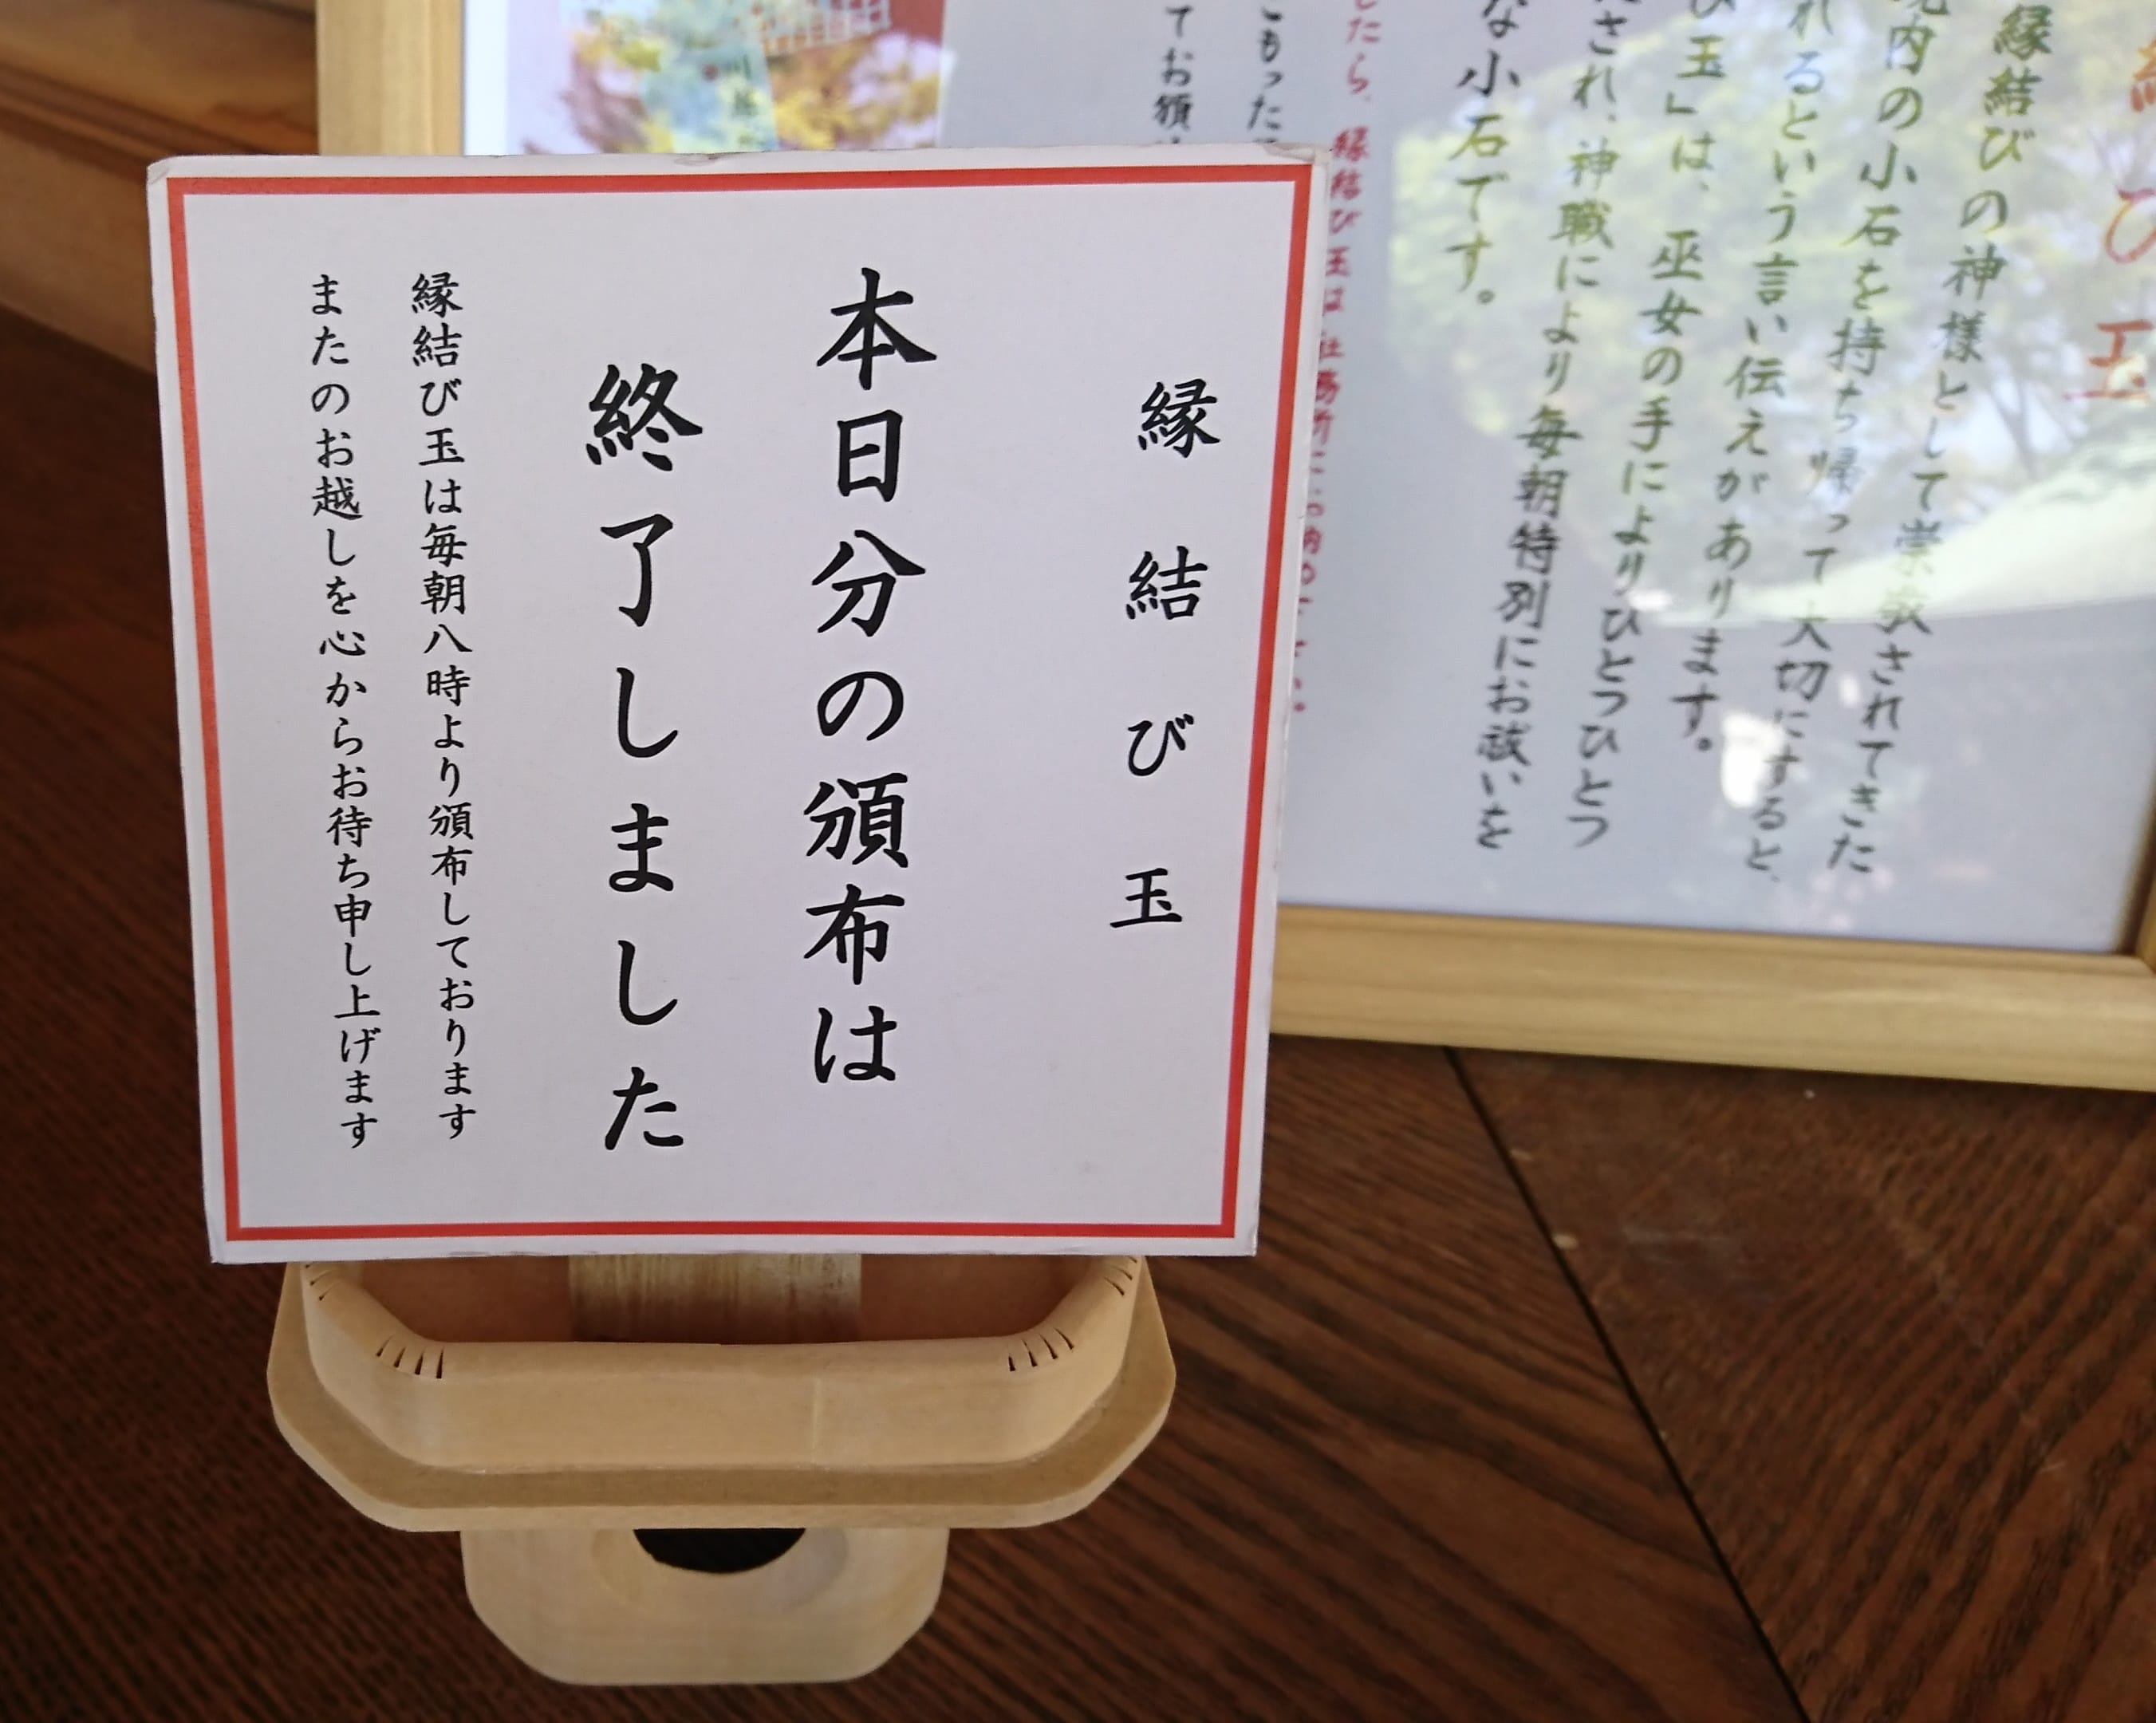 縁結び玉
本日分の頒布は
終了しました
縁結び玉は毎朝八時より頒布しております
またのお越しを心からお待ち申し上げます
び玉
縁結びの神様として崇敬されてきた
内の小石を持ち帰って大切にすると、
れるという言い伝えがあります。
び玉」は、巫女の手によりひとつひとつ
され、神職により毎朝特別にお祓いを
な小石です。
したら、縁結び玉は社務所に
こもった
てお頒